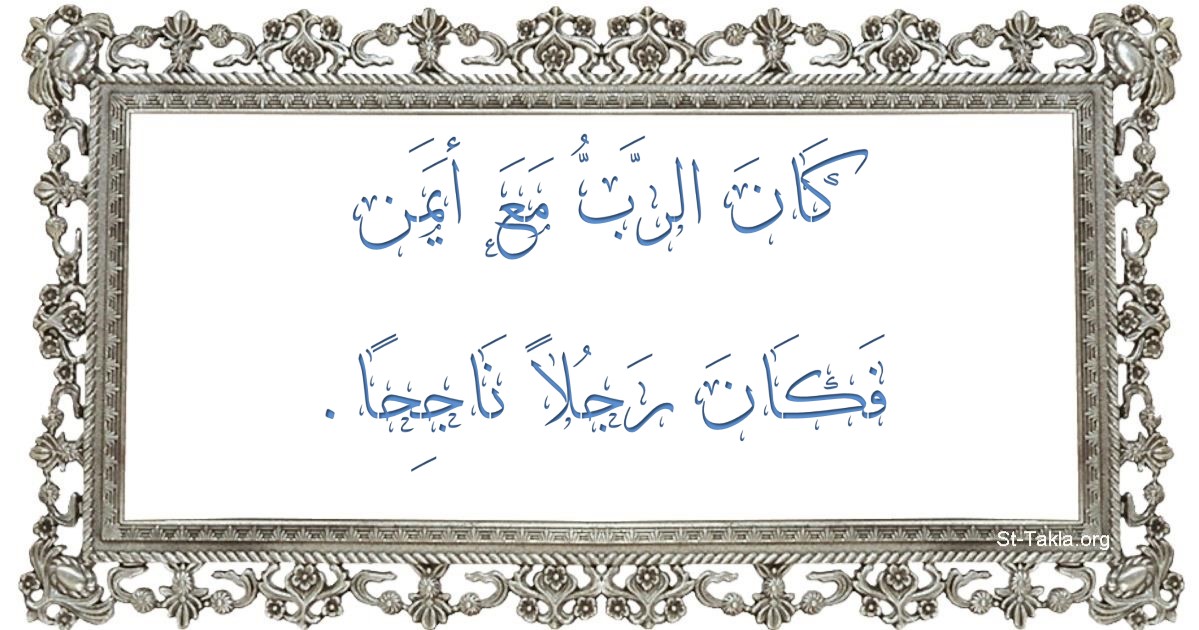 كَانَ الرَّبُّ مَعَ أيَمَن
فَكَانَ رَجُلاً نَاجِحًا .
St-Takla.org